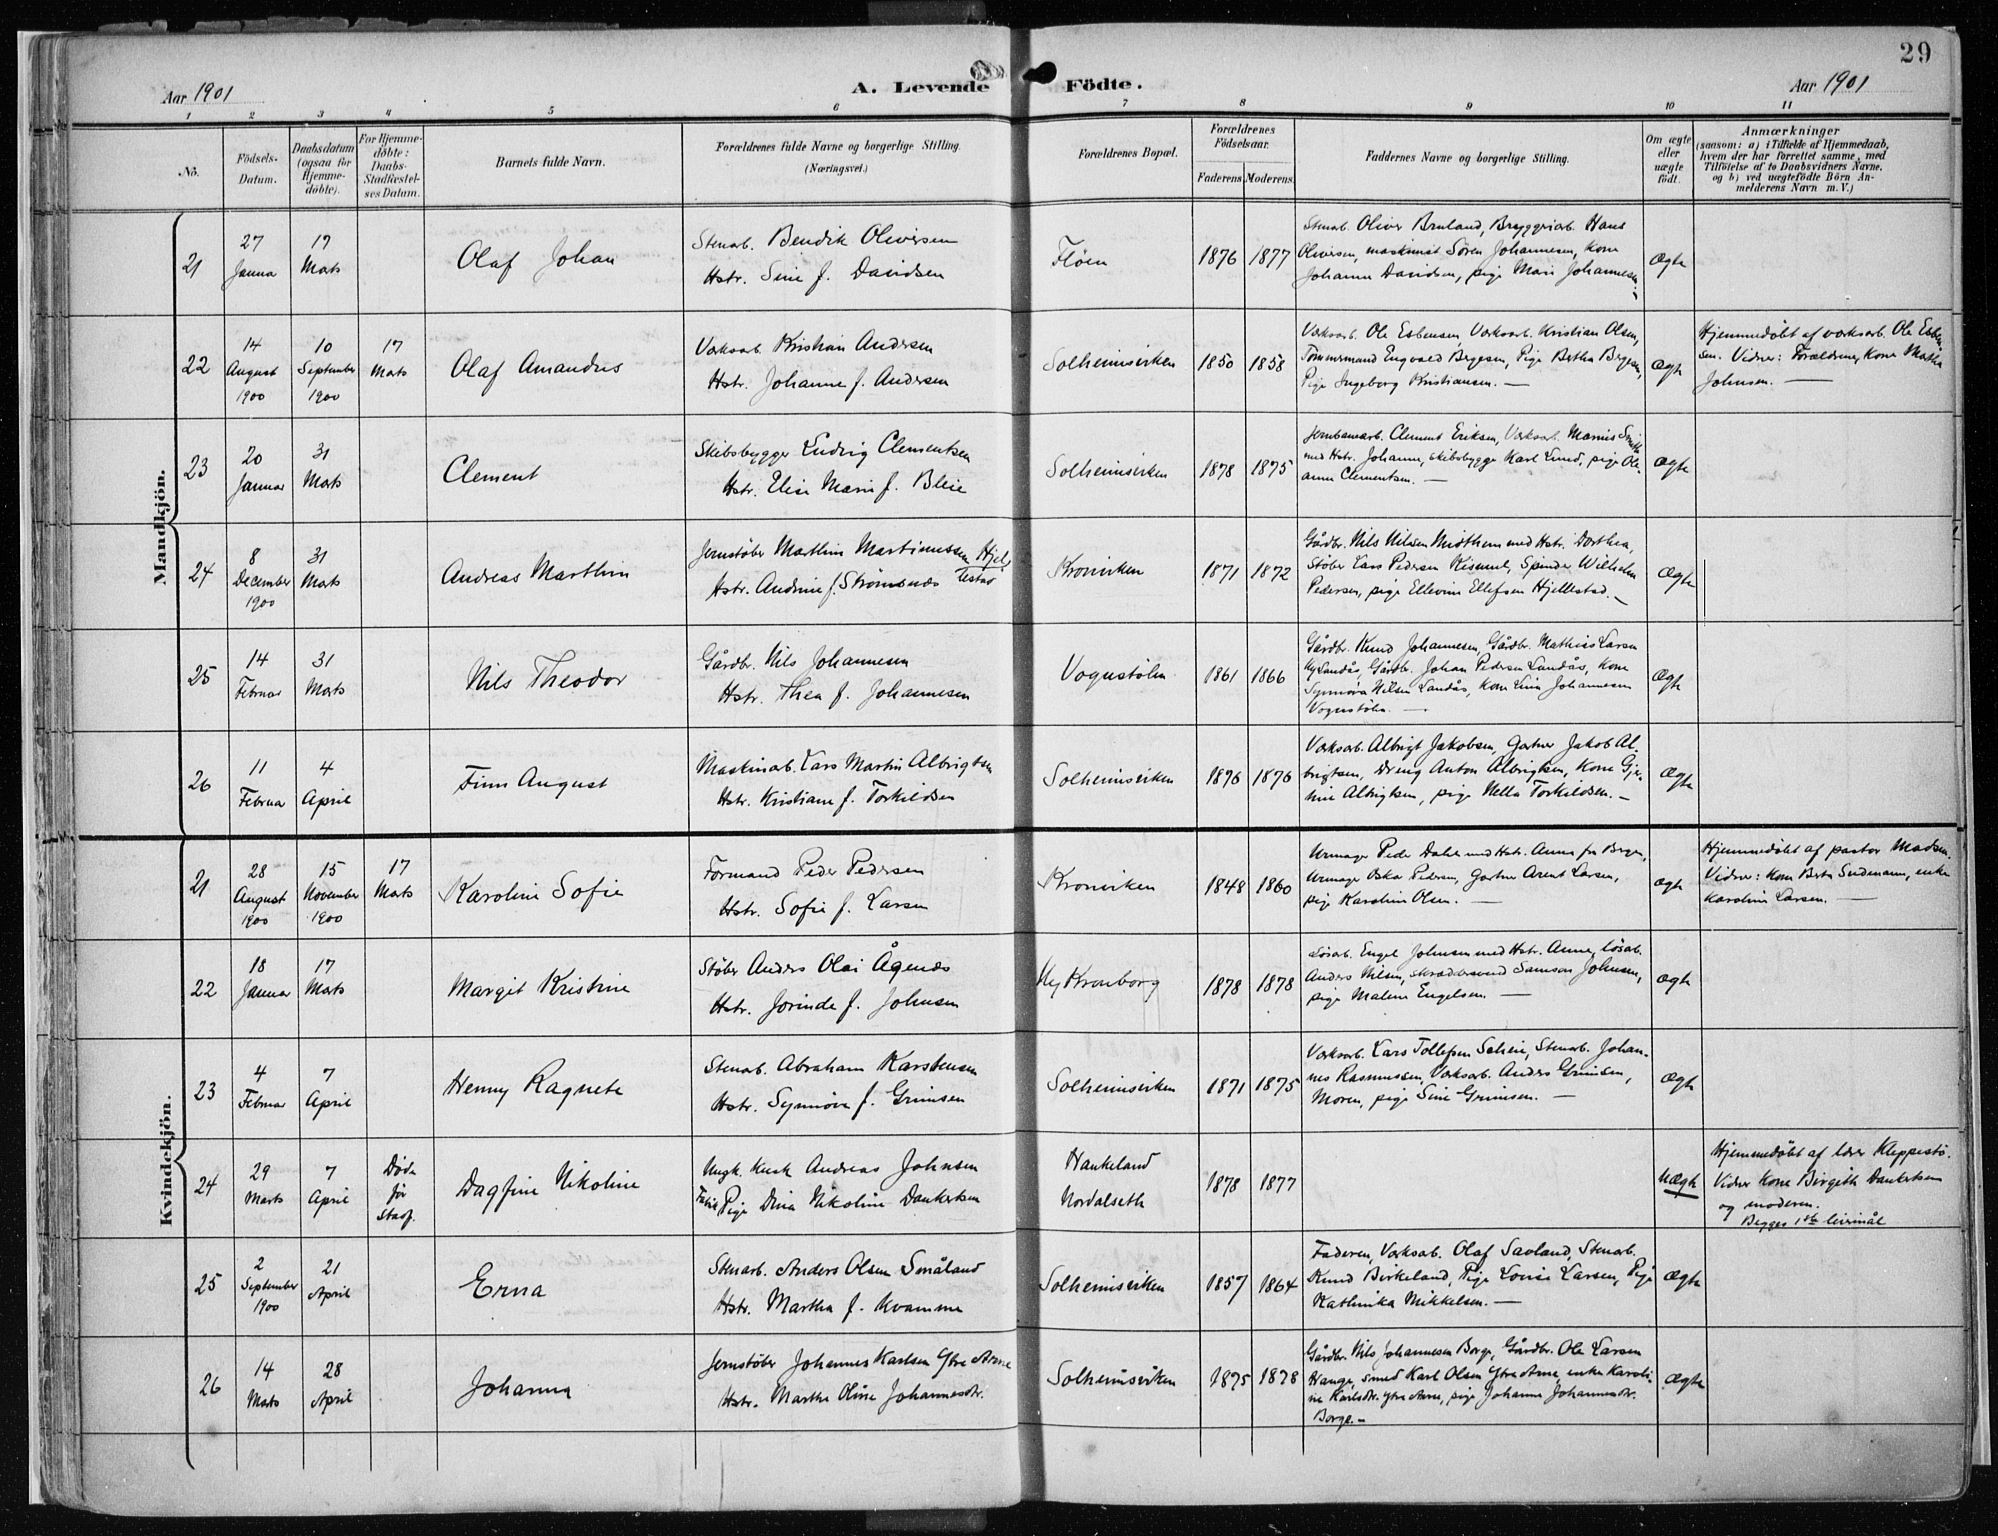 29
Aar 1901
A. Levende Födte.
Aar 1901
1 2 3 4 5 6 7 8 9 10 11
No.
Födsels-
Datum.
Daabsdatum
(ogsaa for
Hjemme-
döbte).
For Hjemme-
döbte:
Daabs-
Stadfæstel-
ses Datum.
Barnets fulde Navn.
Forældrenes fulde Navne og borgerlige Stilling.
(Næringsvei.)
Forældrenes Bopæl.
Forældrenes
Födselsaar.
Faderens. Moderens.
Faddernes Navne og borgerlige Stilling.
Om ægte
eller
uægte
født.
Anmærkninger
(saasom: a) i Tilfælde af Hjemmedaab,
hvem der har forrettet samme, med
Tilföielse af to Daabsvidners Navne,
og b) ved uægtefödte Börn An-
melderens Navn m. V.)
Mandkjön.
21
27
Januar
17
Marts
Olaf Johan
Stenarb. Bendik Oliversen
Hstr. Sine f. Davidsen
Fløen
1876 1877
Stenarb. Oliver Bruland, Bryggeriarb. Hans
Oliversen, maskinist Søren Johannesen, Kone
Johanne Davidsen, pige Marie Johannesen
Ægte
22
14
August
1900
10
September
1900
17
Marts
Olaf Amandus
Værksarb. Kristian Andersen
Hstr. Johanne f. Andersen
Solheimsviken
1850 1858
Værksarb. Ole Esbensen, Værksarb. Kristian Olsen,
Tømmermand Engvald Bergesen, Pige Bertha Bergesen,
Pige Ingeborg Kristiansen. —
Ægte
Hjemmedøbt af værksarb. Ole Esben
sen. Vidner: Forældrene, Kone Mathia
Johnsen. —
23
20
Januar
31
Marts
Clement
Skibsbygger Ludvig Clementsen
Hstr. Elise Marie f. Bleie
Solheimsviken
1878 1875
Jernbanearb. Clement Eriksen, Værksarb. Marius Smith
med Hstr. Johanne, skibsbygge Karl Lund, pige Ole-
anna Clementsen. —
Ægte
24
8
December
1900
31
Marts
Andreas Marthin
Jernstøber Marthin Martinussen Hjel-
lestad
Hstr. Andrine f. Strømsnæs
Kronviken
1871 1872
Gårdbr. Nils Nilsen Midthun med Hstr. Dorthea,
Støber Lars Pedersen Rismul, Spinder Wilhelm
Pedersen, pige Ellevine Ellefsen Hjellestad. —
Ægte
25
14
Februar
31
Marts
Nils Theodor
Gårdbr. Nils Johannesen
Hstr. Thea f. Johannesen
Vognstølen
1861 1866
Gårdbr. Knud Johannesen, Gårdbr. Mathias Larsen
Ny Landås, Gårdbr. Johan Pedersen Landås, Kone
Synnøva Nilsen Landås, Kone Lina Johannesen
Vognstølen. —
Ægte
26
11
Februar
4
April
Finn August
Maskinarb. Lars Martin Albrigtsen
Hstr. Kristiane f. Torkildsen
Solheimsviken
1876 1876
Værksarb. Albrigt Jakobsen, Gartner Jakob Al-
brigtsen, Dreng Anton Albrigtsen, Kone Gje-
rine Albrigtsen, pige Nella Torkildsen. —
Ægte
Kvindekjön.
21
28
August
1900
15
November
1900
17
Marts
Karoline Sofie
Formand Peder Pedersen
Hstr. Sofie f. Larsen
Kronviken
1848 1860
Urmager Peder Dahl med Hstr. Anna fra Bergen,
Urmager Oskar Pedersen, Gartner Arent Larsen,
pige Karoline Olsen. —
Ægte
Hjemmedøbt af pastor Madsen.
Vidner: Kone Berta Sudmann, enke
Karoline Larsen. —
22
18
Januar
17
Marts
Margit Kristine
Støber Anders Olai Ågenæs
Hstr. Jorinde f. Johnsen
Ny Kronborg
1878 1878
Løsarb. Engel Johnsen med Hstr. Anne, løsarb.
Anders Nilsen, skræddersvend Samson Johnsen,
pige Malene Engelsen. —
Ægte
23
4
Februar
7
April
Henny Ragnete
Stenarb. Abraham Karstensen
Hstr. Synnøve f. Grimsen
Solheimsviken
1871 1875
Værksarb. Lars Tollefsen Scheie, Stenarb. Johan-
nes Rasmussen, Værksarb. Anders Grimsen,
Moren, pige Sine Grimsen. —
Ægte
24
29
Marts
7
April
Døde
før
stadf.
Dagfine Nikoline
Ungk. Kusk Andreas Johnsen
Pige Dina Nikoline Dankertsen
Haukeland
Nordalseth
1878 1877
Uægte
Hjemmedøbt af lærer Kleppestø.
Vidner Kone Birgith Dankertsen
og moderen.
Begges 1ste leiermål
25
2
September
1900
21
April
Erna
Stenarb. Anders Olsen Småland
Hstr. Martha f. Kvamme
Solheimsviken
1857 1864
Faderen, Værksarb. Olaf Savland, Stenarb.
Knud Birkeland, Pige Lovise Larsen, Pige
Kathinka Mikkelsen. —
Ægte
26
14
Marts
28
April
Johanna
Jernstøber Johannes Karlsen Ytre Arne
Hstr. Marthe Oline Johannesdtr.
Solheimsviken
1875 1878
Gårdbr. Nils Johannesen Borge, Gårdbr. Ole Larsen
Hauge, smed Karl Olsen Ytre Arne, enke Karoli-
ne Karlsdtr. Ytre Arne, pige Johanne Johannesdtr.
Borge. —
Ægte